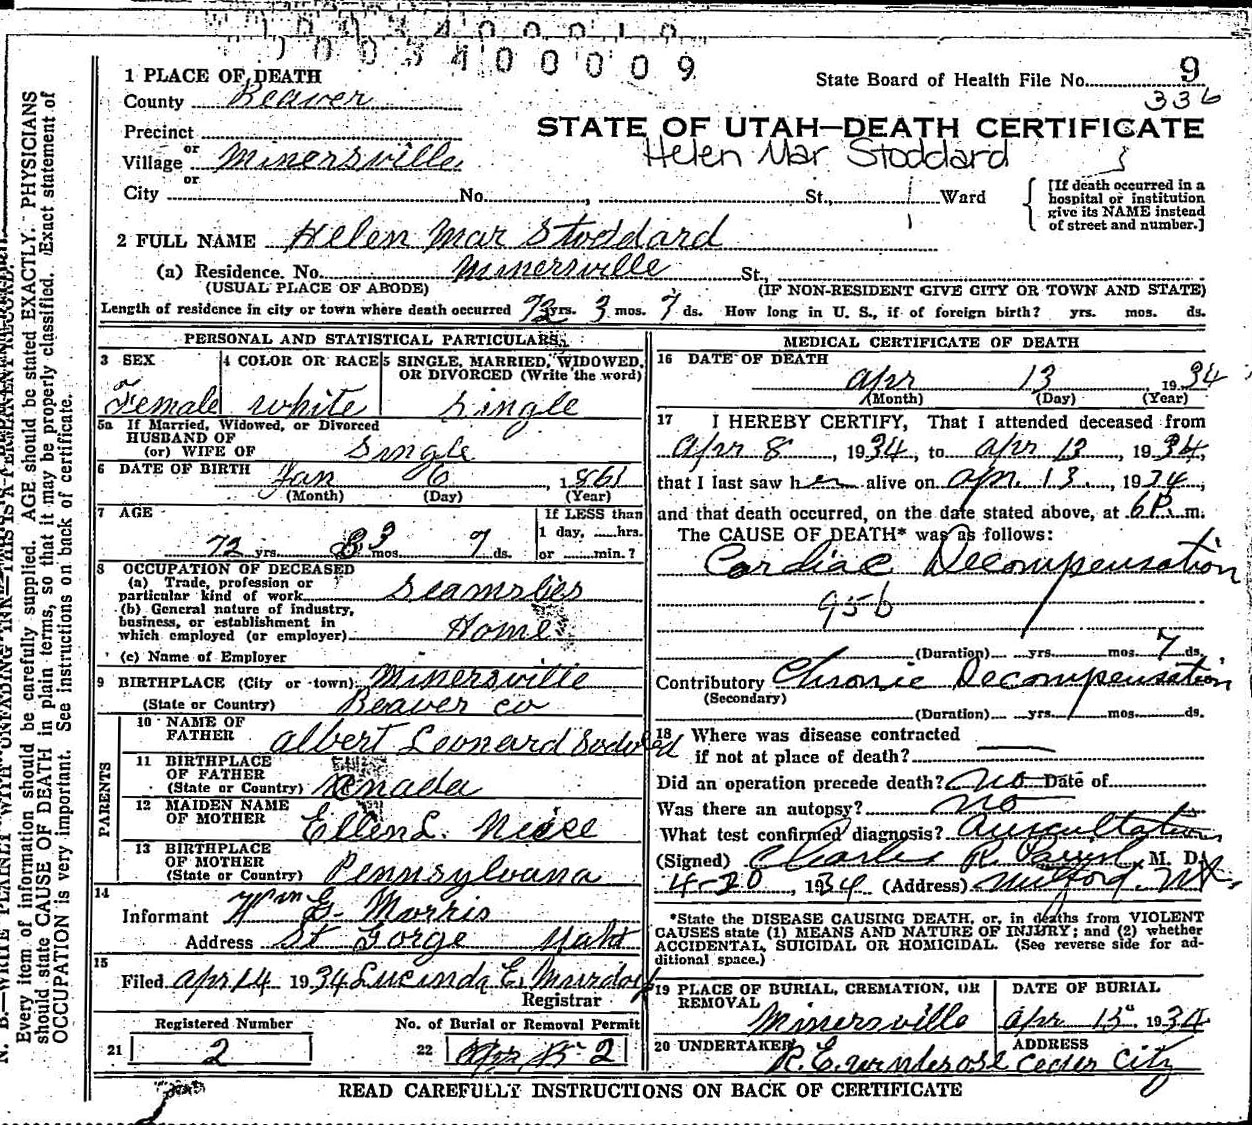 0003400009
1 PLACE OF DEATH
State Board of Health File No. 9
County Beaver
336
Precinct
STATE OF UTAH—DEATH CERTIFICATE
or
Village Minersville
Helen Mar Stoddard
or
City No. , St., Ward
[If death occurred in a
hospital or institution
give its NAME instead
of street and number.]
2 FULL NAME Helen Mar Stoddard
(a) Residence. No. Minersville St.,
(USUAL PLACE OF ABODE) (IF NON-RESIDENT GIVE CITY OR TOWN AND STATE)
Length of residence in city or town where death occurred 72 yrs. 3 mos. 7 ds. How long in U. S., if of foreign birth? yrs. mos. ds.
PERSONAL AND STATISTICAL PARTICULARS
3 SEX
Female
4 COLOR OR RACE
white
5 SINGLE, MARRIED, WIDOWED,
OR DIVORCED (Write the word)
Single
5a If Married, Widowed, or Divorced
HUSBAND OF
(or) WIFE OF Single
6 DATE OF BIRTH Jan 6, 1861
(Month) (Day) (Year)
7 AGE
72 yrs. 3 mos. 7 ds.
If LESS than
1 day, hrs.
or min.?
8 OCCUPATION OF DECEASED
(a) Trade, profession or
particular kind of work Seamstres
(b) General nature of industry,
business, or establishment in
which employed (or employer) Home
(c) Name of Employer
9 BIRTHPLACE (City or town) Minersville
(State or Country) Beaver co
PARENTS
10 NAME OF
FATHER Albert Leonard
11 BIRTHPLACE
OF FATHER
(State or Country) Kenada
12 MAIDEN NAME
OF MOTHER Ellen L.
13 BIRTHPLACE
OF MOTHER
(State or Country) Pennsylvana
14
Informant Wm G. Morris
Address St Gorge Utah
15
Filed Apr 14 1934 Lucinda E. Murdoy
Registrar
Registered Number
21 2
No. of Burial or Removal Permit
22 2
MEDICAL CERTIFICATE OF DEATH
16 DATE OF DEATH
Apr 13, 1934
(Month) (Day) (Year)
17 I HEREBY CERTIFY, That I attended deceased from
Apr 8, 1934, to Apr 13, 1934,
that I last saw her alive on Apr. 13., 1934,
and that death occurred, on the date stated above, at 6P. m.
The CAUSE OF DEATH* was as follows:
Cardiac Decompensation
95b
(Duration) yrs. mos. 7 ds.
Contributory Chronic Decompensation
(Secondary)
(Duration) yrs. mos. ds.
18 Where was disease contracted
if not at place of death?
Did an operation precede death? no Date of
Was there an autopsy? no
What test confirmed diagnosis? Auscultation
(Signed) Charles R. M. D.
4-20, 1934 (Address) Milford, Ut.
*State the DISEASE CAUSING DEATH, or, in deaths from VIOLENT
CAUSES state (1) MEANS AND NATURE OF INJURY; and (2) whether
ACCIDENTAL, SUICIDAL OR HOMICIDAL. (See reverse side for ad-
ditional space.)
19 PLACE OF BURIAL, CREMATION, OR
REMOVAL
Minersville
DATE OF BURIAL
Apr 15th 1934
20 UNDERTAKER
R. E.
ADDRESS
Ceder City
READ CAREFULLY INSTRUCTIONS ON BACK OF CERTIFICATE
N. B.—WRITE PLAINLY WITH UNFADING INK—THIS IS A PERMANENT RECORD.
Every item of information should be carefully supplied. AGE should be stated EXACTLY. PHYSICIANS
should state CAUSE OF DEATH in plain terms, so that it may be properly classified. Exact statement of
OCCUPATION is very important. See instructions on back of certificate.